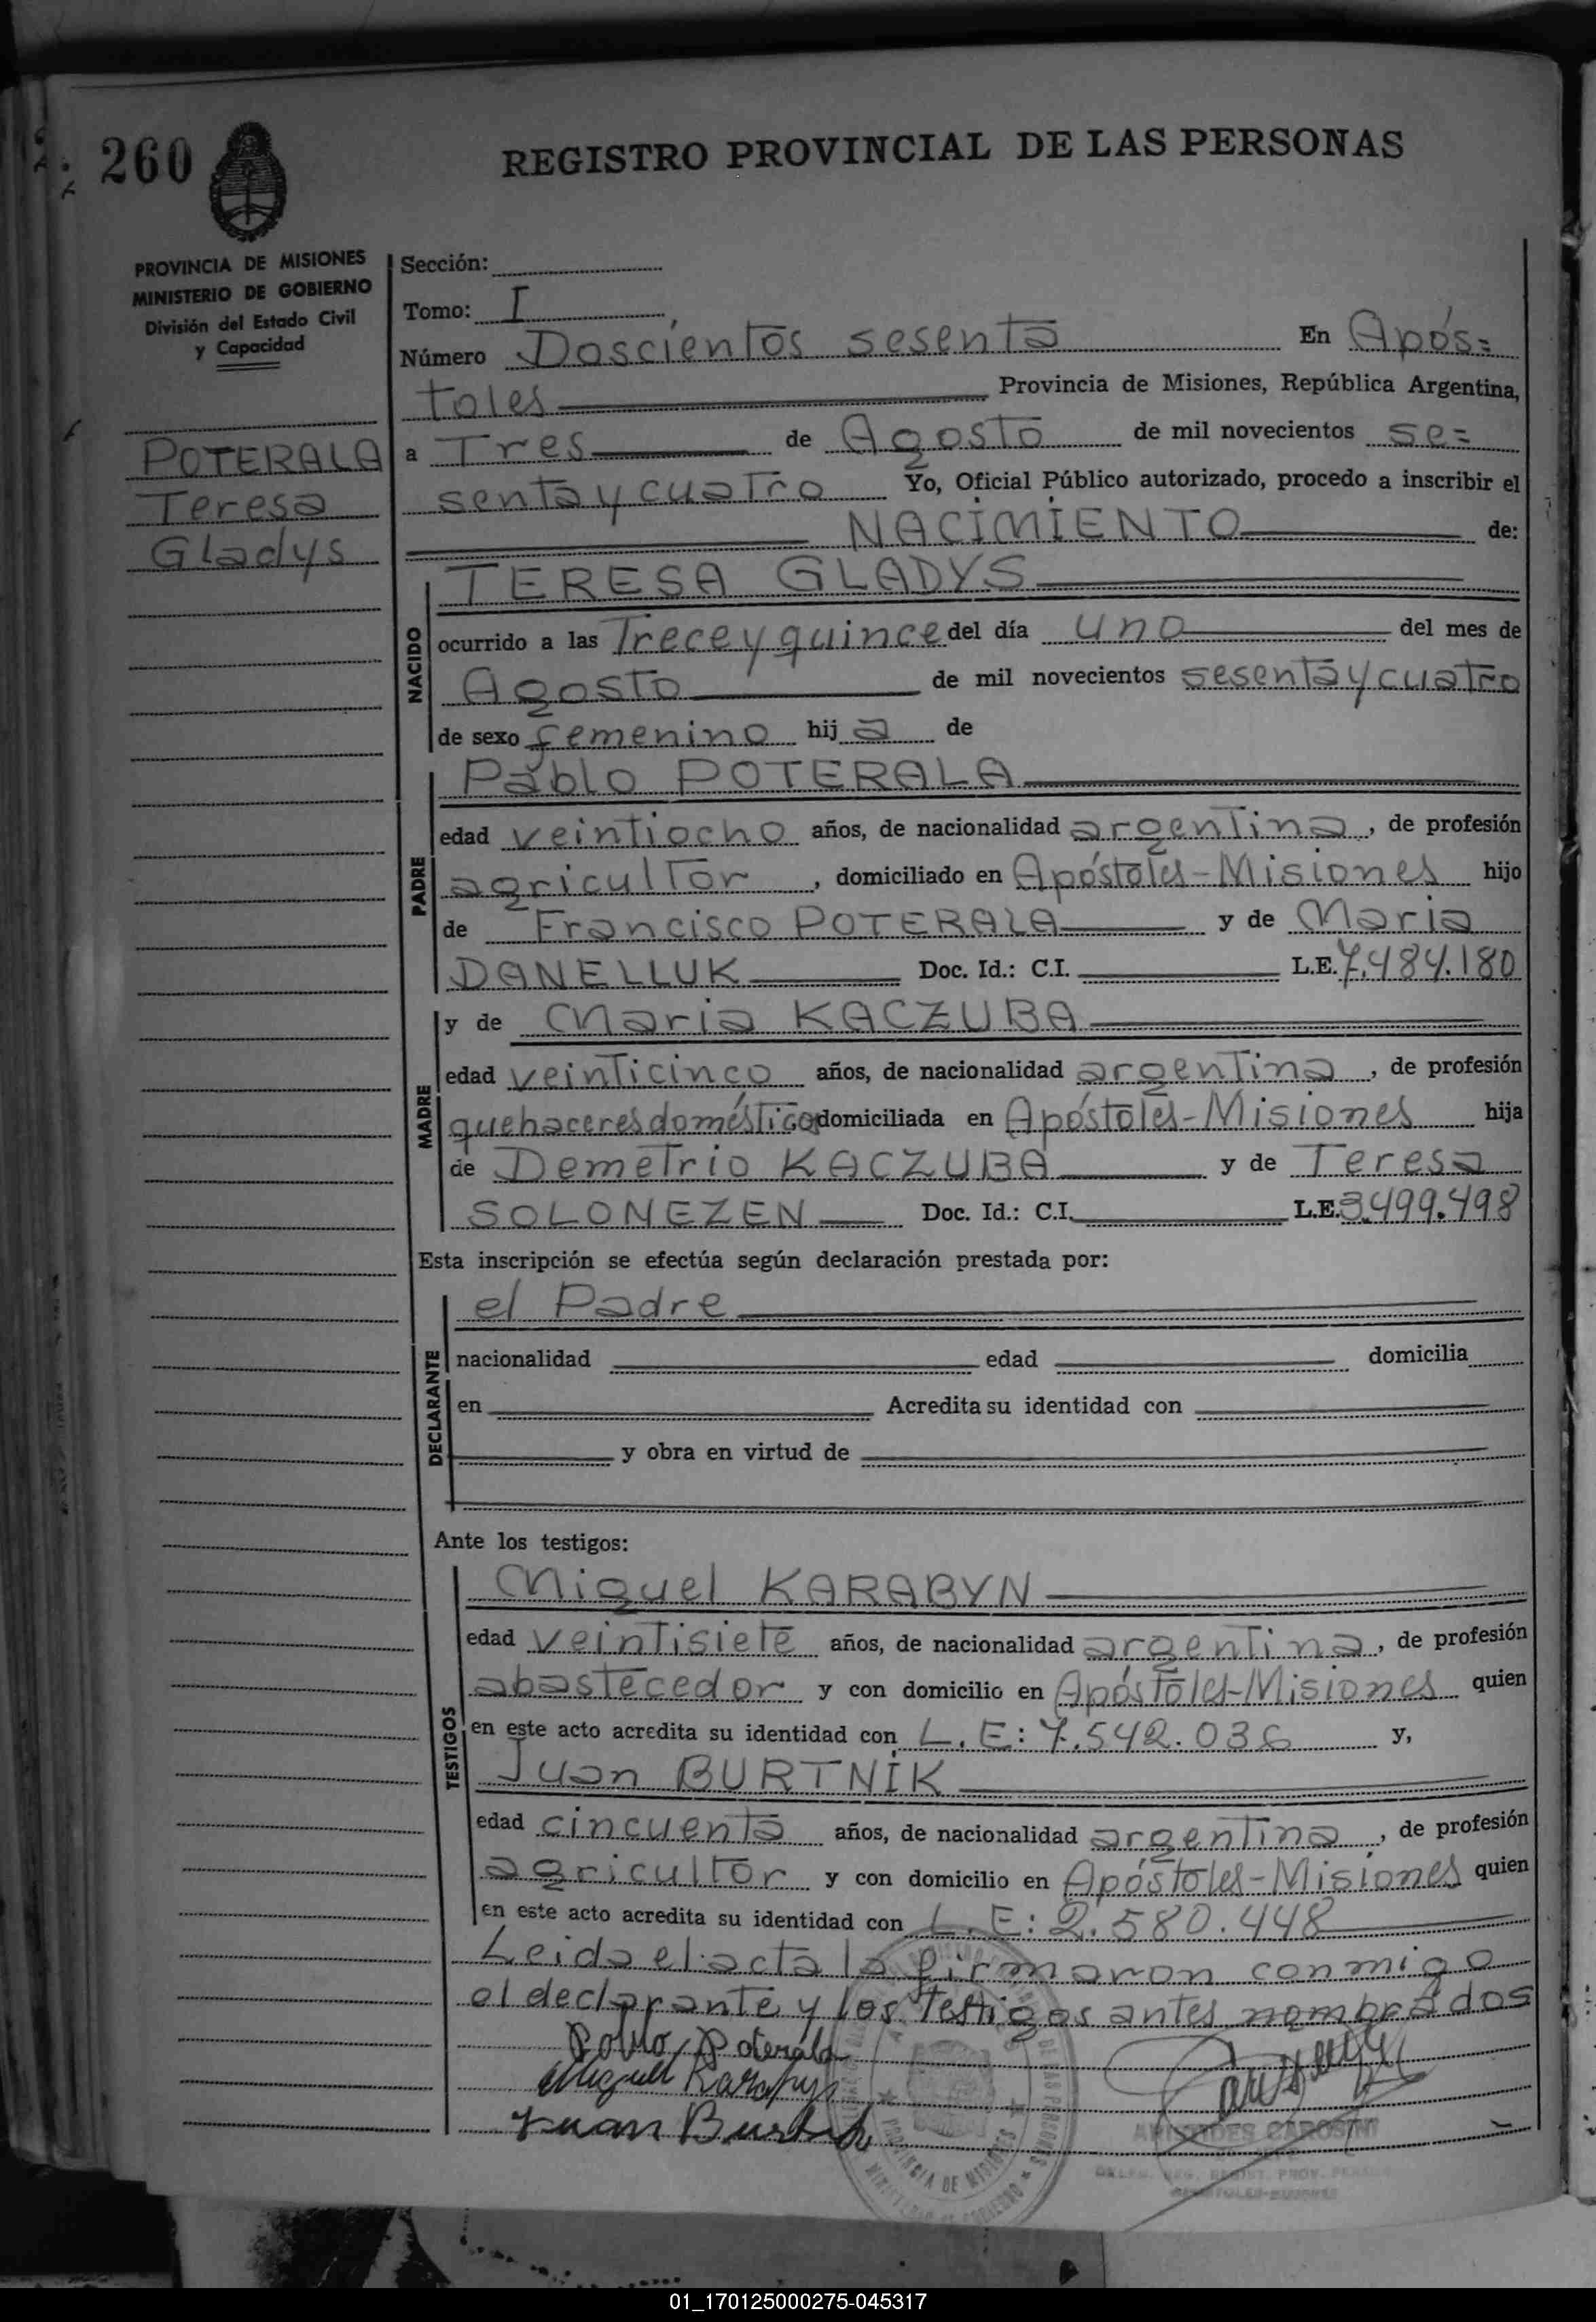 260
REGISTRO PROVINCIAL DE LAS PERSONAS
PROVINCIA DE MISIONES
MINISTERIO DE GOBIERNO
División del Estado Civil
y Capacidad
POTERALA
Teresa
Gladys
Sección:
Tomo: I
Número Doscientos sesenta En Após=
toles Provincia de Misiones, República Argentina,
a Tres de Agosto de mil novecientos se=
senta y cuatro Yo, Oficial Público autorizado, procedo a inscribir el
NACIMIENTO de:
NACIDO
TERESA GLADYS
ocurrido a las Trece y quince del día uno del mes de
Agosto de mil novecientos sesenta y cuatro
de sexo femenino hij a de
PADRE
Pablo POTERALA
edad veintiocho años, de nacionalidad argentina, de profesión
agricultor, domiciliado en Apóstoles-Misiones hijo
de Francisco POTERALA y de Maria
DANELLUK Doc. Id.: C.I. L.E. 7.484.180
MADRE
y de Maria KACZUBA
edad veinticinco años, de nacionalidad argentina, de profesión
quehaceres domésticos domiciliada en Apóstoles-Misiones hija
de Demetrio KACZUBA y de Teresa
SOLONEZEN Doc. Id.: C.I. L.E. 3.499.498
Esta inscripción se efectúa según declaración prestada por:
DECLARANTE
el Padre
nacionalidad edad domicilia
en Acredita su identidad con
y obra en virtud de
Ante los testigos:
TESTIGOS
Miguel KARABYN
edad veintisiete años, de nacionalidad argentina, de profesión
abastecedor y con domicilio en Apóstoles-Misiones quien
en este acto acredita su identidad con L.E: 7.542.036 y,
Juan BURTNIK
edad cincuenta años, de nacionalidad argentina, de profesión
agricultor y con domicilio en Apóstoles-Misiones quien
en este acto acredita su identidad con L.E: 2.580.448
Leida el acta la firmaron conmigo
el declarante y los Testigos antes nombrados
Pablo Poterala
Miguel Karabyn
Juan Burtnik
PROVINCIA DE MISIONES
ARISTIDES CAROSINI
01_170125000275-045317